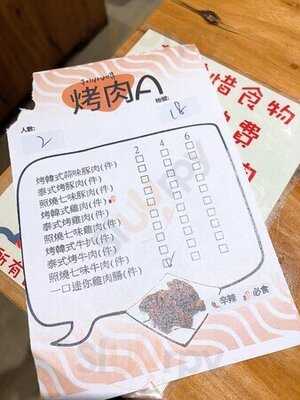 烤肉A
人數:
2
枱號:
18
2 4 6
烤韓式蒜味豚肉(件)
泰式烤豚肉(件)
照燒七味豚肉(件)
烤韓式雞肉(件)
泰式烤雞肉(件)
照燒七味雞肉(件)
烤韓式牛扒(件)
泰式烤牛肉(件)
照燒七味牛肉(件)
一口迷你雞肉腸(件)
辛辣
必食
惜食物
費
所有